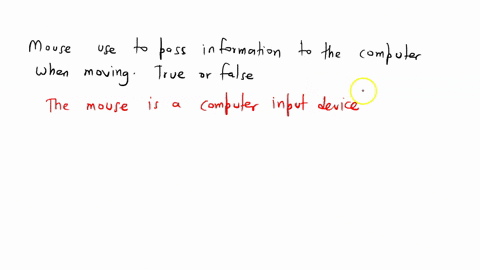 Mouse use to pass information to the computer
when moving. True or false
The mouse is a computer input device